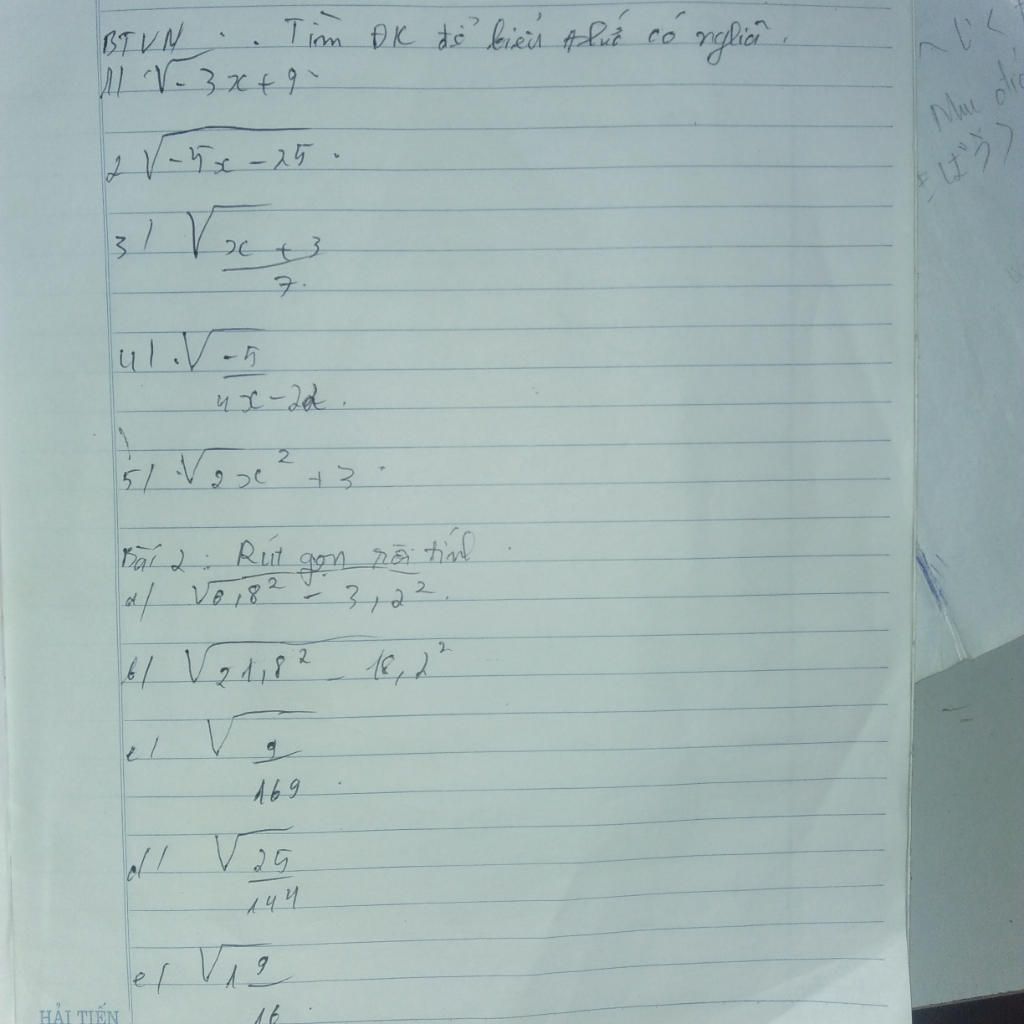 BTVN : Tìm ĐK để biểu thức có nghĩa.
1/ √-3x + 9
2 √-5x - 25
3/ √x + 3
7
4/ √-5
4x - 2
5/ √2x² + 3
Bài 2 : Rút gọn rồi tính
a/ √6,8² - 3,2²
b/ √21,8² - 18,2²
c/ √9
169
d/ √25
144
e/ √1 9
16
HẢI TIẾN
ばう